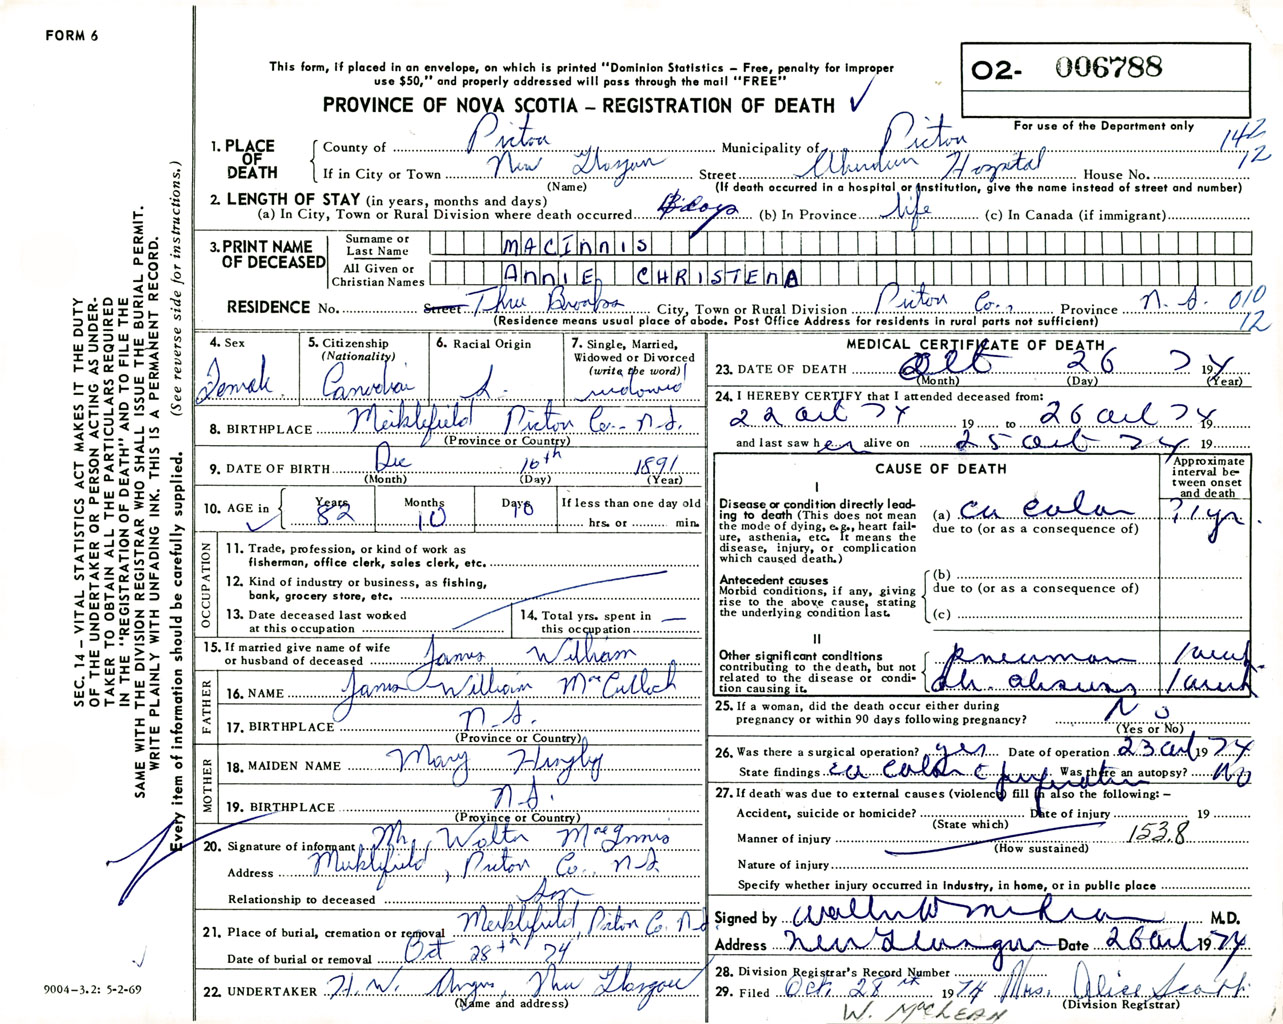 FORM 6
This form, if placed in an envelope, on which is printed "Dominion Statistics — Free, penalty for improper
use $50," and properly addressed will pass through the mail "FREE"
PROVINCE OF NOVA SCOTIA — REGISTRATION OF DEATH ✓
O2- 006788
For use of the Department only
142
12
1. PLACE OF DEATH
County of Pictou Municipality of Pictou
If in City or Town New Glasgow Street Aberdeen Hospital House No.
(Name) (If death occurred in a hospital or institution, give the name instead of street and number)
2. LENGTH OF STAY (in years, months and days)
(a) In City, Town or Rural Division where death occurred days (b) In Province life (c) In Canada (if immigrant)
3. PRINT NAME OF DECEASED
Surname or Last Name MACINNIS
All Given or Christian Names ANNIE CHRISTENA
RESIDENCE No. Street Three Brooks City, Town or Rural Division Pictou Co., Province N.S. 010
12
(Residence means usual place of abode. Post Office Address for residents in rural parts not sufficient)
4. Sex Female
5. Citizenship (Nationality) Canadian
6. Racial Origin
7. Single, Married, Widowed or Divorced (write the word) widowed
8. BIRTHPLACE Meiklefield Pictou Co. N.S.
(Province or Country)
9. DATE OF BIRTH Dec 16th 1891
(Month) (Day) (Year)
10. AGE in Years 82 Months 10 Days 10 If less than one day old hrs. or min.
✓
OCCUPATION
11. Trade, profession, or kind of work as
fisherman, office clerk, sales clerk, etc.
12. Kind of industry or business, as fishing,
bank, grocery store, etc.
13. Date deceased last worked
at this occupation
14. Total yrs. spent in
this occupation —
15. If married give name of wife
or husband of deceased James William
FATHER
16. NAME James William MacCulloch
17. BIRTHPLACE N.S.
(Province or Country)
MOTHER
18. MAIDEN NAME Mary
19. BIRTHPLACE N.S.
(Province or Country)
20. Signature of informant Mr. Walter MacInnis
Address Meiklefield, Pictou Co. N.S.
Relationship to deceased Son
21. Place of burial, cremation or removal Meiklefield, Pictou Co. N.S.
Date of burial or removal Oct 28th 74
22. UNDERTAKER H.W. Angus, New Glasgow
(Name and address)
MEDICAL CERTIFICATE OF DEATH
23. DATE OF DEATH Oct 26 1974
(Month) (Day) (Year)
24. I HEREBY CERTIFY that I attended deceased from:
22 Oct 74 19 to 26 Oct 74 19
and last saw her alive on 25 Oct 74 19
CAUSE OF DEATH
Approximate interval between onset and death
I
Disease or condition directly leading to death (This does not mean the mode of dying, e.g., heart failure, asthenia, etc. It means the disease, injury, or complication which caused death.)
(a) ca colon ? 1 yr.
due to (or as a consequence of)
Antecedent causes
Morbid conditions, if any, giving rise to the above cause, stating the underlying condition last.
(b)
due to (or as a consequence of)
(c)
II
Other significant conditions contributing to the death, but not related to the disease or condition causing it.
pneumonia 1 week
1 week
25. If a woman, did the death occur either during
pregnancy or within 90 days following pregnancy? No
(Yes or No)
26. Was there a surgical operation? yes Date of operation 23 Oct 1974
State findings ca colon c perforation Was there an autopsy? No
27. If death was due to external causes (violence) fill in also the following: —
Accident, suicide or homicide? Date of injury 19
(State which)
Manner of injury 153.8
(How sustained)
Nature of injury
Specify whether injury occurred in industry, in home, or in public place
Signed by M.D.
Address New Glasgow Date 26 Oct 1974
28. Division Registrar's Record Number
29. Filed Oct. 28th 1974 Mrs. Alice Scott
(Division Registrar)
W. McLEAN
SEC. 14 — VITAL STATISTICS ACT MAKES IT THE DUTY
OF THE UNDERTAKER OR PERSON ACTING AS UNDER-
TAKER TO OBTAIN ALL THE PARTICULARS REQUIRED
IN THE "REGISTRATION OF DEATH" AND TO FILE THE
SAME WITH THE DIVISION REGISTRAR WHO SHALL ISSUE THE BURIAL PERMIT.
WRITE PLAINLY WITH UNFADING INK. THIS IS A PERMANENT RECORD.
Every item of information should be carefully supplied. (See reverse side for instructions.)
9004-3.2: 5-2-69